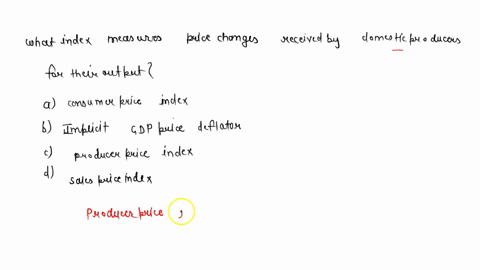 what index measures price changes received by domestic producers
for their output?
a) consumer price index
b) Implicit GDP price deflator
c) producer price index
d) sales price index
Producer price